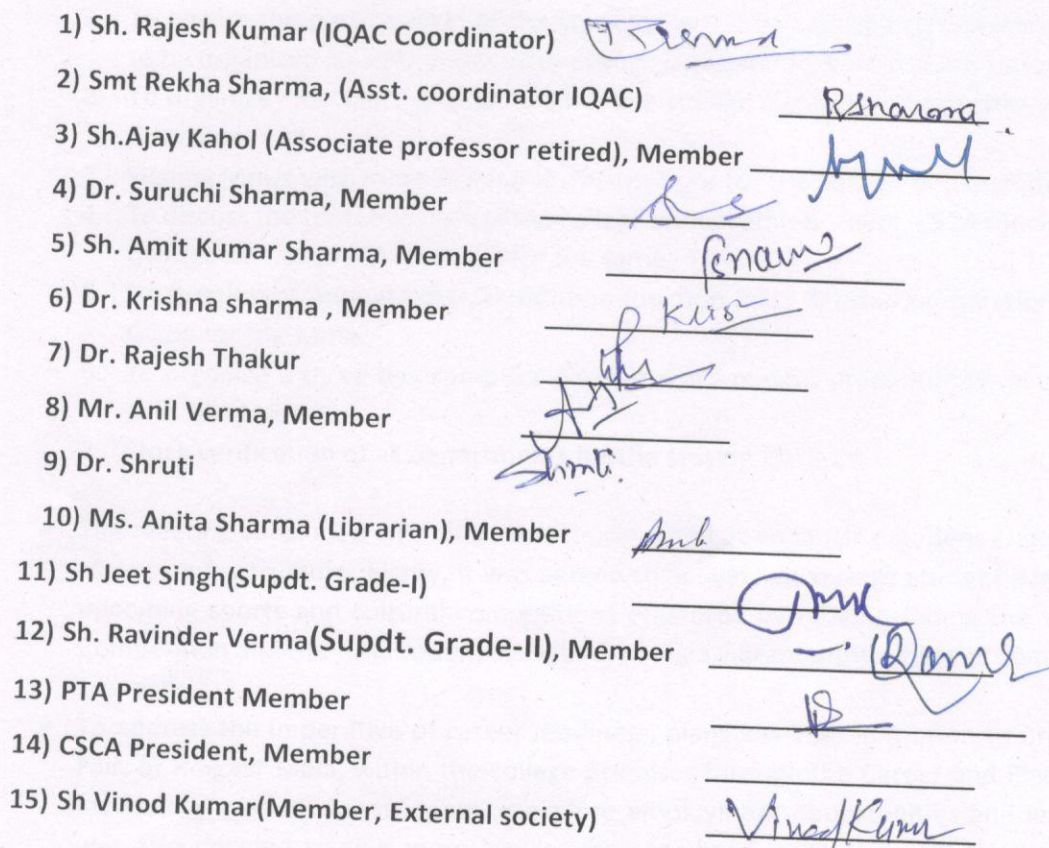 1) Sh. Rajesh Kumar (IQAC Coordinator)
2) Smt Rekha Sharma, (Asst. coordinator IQAC) RSharma
3) Sh.Ajay Kahol (Associate professor retired), Member
4) Dr. Suruchi Sharma, Member
5) Sh. Amit Kumar Sharma, Member
6) Dr. Krishna sharma , Member
7) Dr. Rajesh Thakur
8) Mr. Anil Verma, Member
9) Dr. Shruti Shruti
10) Ms. Anita Sharma (Librarian), Member
11) Sh Jeet Singh(Supdt. Grade-I)
12) Sh. Ravinder Verma(Supdt. Grade-II), Member
13) PTA President Member
14) CSCA President, Member
15) Sh Vinod Kumar(Member, External society) Vinod Kumar